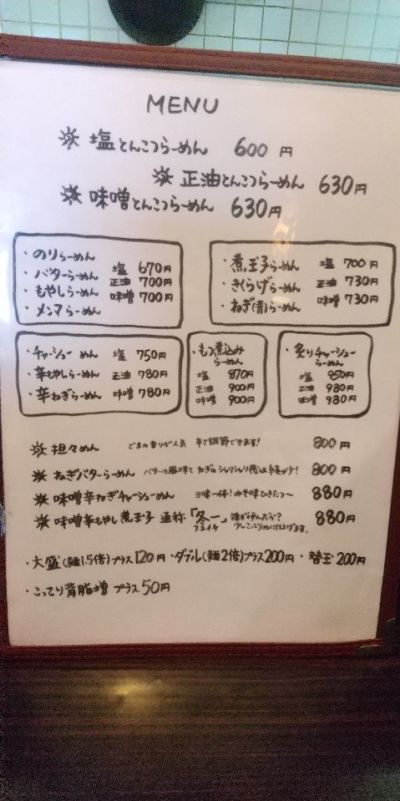 MENU
塩とんこつらーめん 600円
正油とんこつらーめん 630円
味噌とんこつらーめん 630円
・のりらーめん 塩 670円
・バターらーめん 正油 700円
・もやしらーめん 味噌 700円
・メンマらーめん
・煮玉子らーめん 塩 700円
・きくらげらーめん 正油 730円
・ねぎ(青)らーめん 味噌 730円
・チャーシューめん 塩 750円
・辛もやしらーめん 正油 780円
・辛ねぎらーめん 味噌 780円
・もつ煮込みらーめん
塩 870円
正油 900円
味噌 900円
・炙りチャーシューらーめん
塩 950円
正油 980円
味噌 980円
担々めん ごまの香りが人気 辛さ調節できます! 800円
ねぎバターらーめん バターの風味と ねぎのシャリシャリ感 800円
味噌辛ねぎチャーシューめん 880円
味噌辛もやし煮玉子 通称「冬一」フユイチ 880円
・大盛(麺1.5倍)プラス120円・ダブル(麺2倍)プラス200円・替玉200円
・こってり背脂増 プラス50円